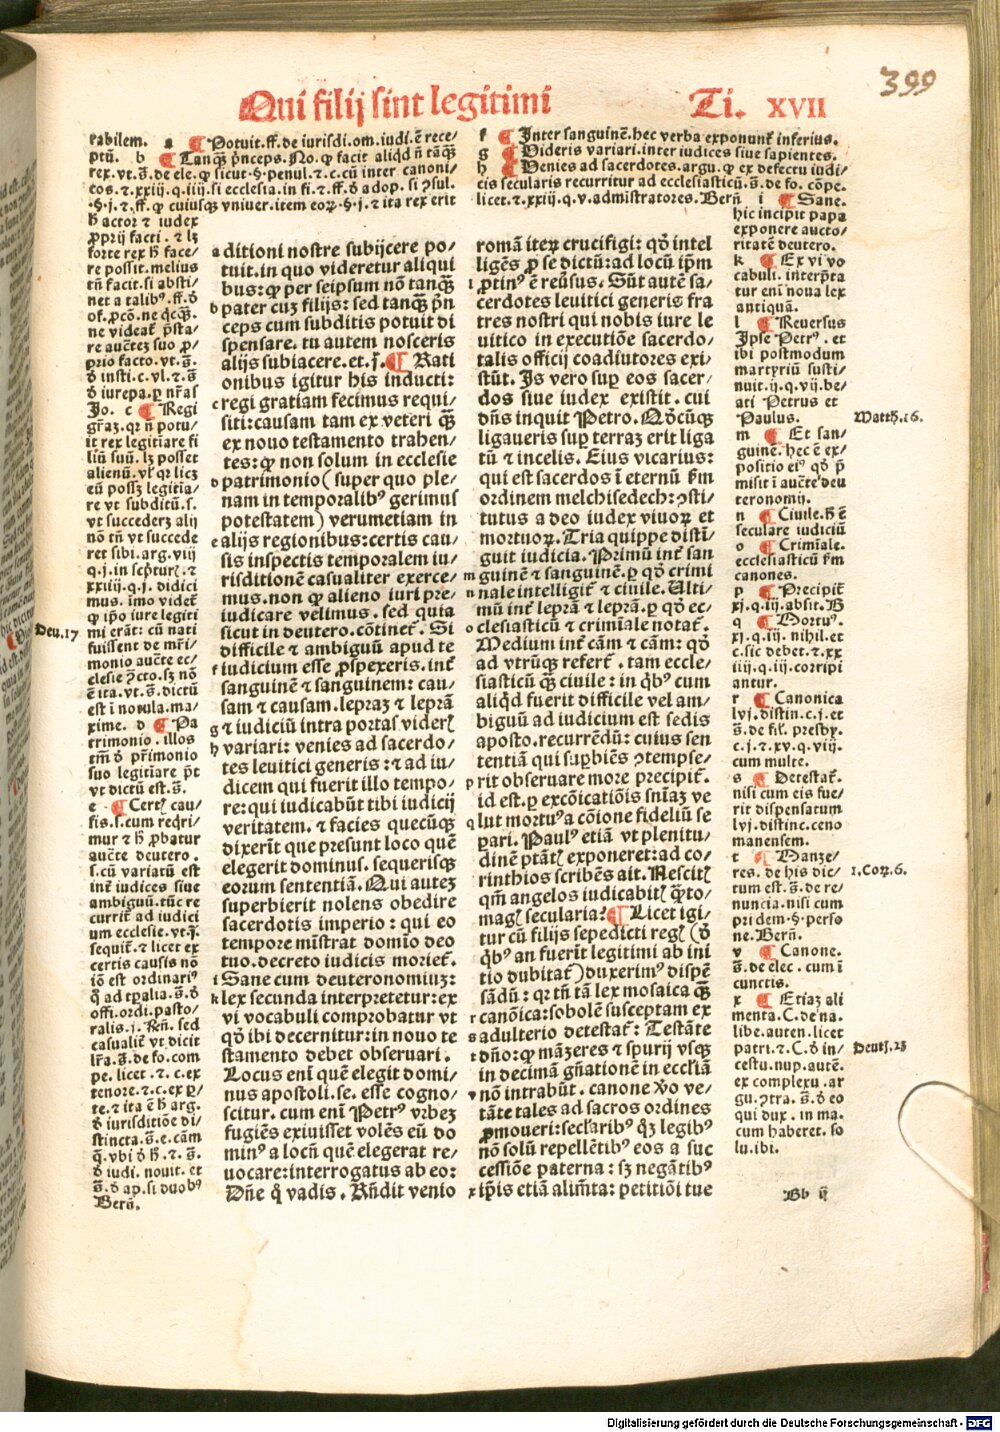 399
Qui filij sint legitimi Ti. XVII
rabilem. a ¶ Potuit.ff.de iurisdi.om.iudi.ē rece/
ptū. b ¶ Tanqȝ p̄nceps. No. ꝙ facit aliqd n̄ tāqȝ
rex. vt.s̄.de ele. ꝙ sicut.§.penul. ⁊.c.cū inter canoni/
cos. ⁊.xxij.q.iiij.si ecclesia.in fi. ⁊.ff.ð adop.si ↄsul.
.§.j. ⁊.ff. ꝙ cuiusqȝ vniuer.item eoꝝ.§.j. ⁊ ita rex erit
h̄ actor ⁊ iudex
ꝓprij facti. ⁊ lȝ
forte rex h̄ face/
re possit.melius
tn̄ facit.si absti/
net a talibꝰ.ff.ð
of.ꝓcō.ne qcqȝ.
ne videat᷑ p̄sta/
re aucteȝ suo ꝓ/
prio facto.vt.s̄.
ð insti.c.vl. ⁊.s̄.
ð iurepa.ꝑ nr̄as
Jo. c ¶ Regi
gr̄aȝ.qꝛ n̄ potu/
it rex legitiare fi
liū suū.lȝ posset
alienū.vl᷑ qꝛ licȝ
eū possȝ legitia/
re vt subditū.s.
vt succederȝ alij
nō tn̄ vt succede
ret sibi.arg.viij
q.j.in scp̄tur?. ⁊
xxiij.q.j.didici
mus. imo videt᷑
ꝙ ip̄o iure legiti
mi erāt: cū nati
fuissent de mr̄i/
monio aucte ec/
clesie ꝓcto.sȝ nō
ē ita.vt.s̄.dictū
est ī nouela.ma/
xime. d ¶ Pa
trimonio.illos
tm̄ ð pr̄imonio
suo legitiare pt̄
vt dictū est.s̄.
e ¶ Cert? cau/
sis.s.cum reqri/
mur ⁊ h̄ ꝓbatur
aucte deutero.
s.cū variatū est
int᷑ iudices siue
ambiguū.tūc re
currit᷑ ad iudici
um ecclesie.vt.ꝗ.
sequit᷑. ⁊ licet ex
certis causis nō
iō est ordinariꝰ
q̄ ad tꝑalia.s̄.ð
offi.ordi.pasto/
ralis.j. Rn̄. sed
casualit᷑ vt dicit
lr̄a.s̄.de fo.com
pe.licet. ⁊.c.ex
tenore. ⁊.c.ex ꝑ/
te. ⁊ ita ē h̄ arg.
ð iurisditiōe di/
stincta.s̄.e.cām
q̄.vbi ð h̄. ⁊.s̄.
ð iudi.nouit.et
s̄.ð ap.si duobꝰ
Bern̄.
Deu.17
a ditioni nostre subijcere po/
tuit.in quo videretur aliqui
bus: ꝙ per seipsum nō tanqȝ
b pater cuȝ filijs: sed tanqȝ p̄n
ceps cum subditis potuit di
spensare.tu autem nosceris
alijs subiacere.et.j. ¶ Rati
onibus igitur his inducti:
c regi gratiam fecimus requi/
siti: causam tam ex veteri qȝ
ex nouo testamento trahen/
tes: ꝙ non solum in ecclesie
d patrimonio (super quo ple/
nam in temporalibꝰ gerimus
potestatem) verumetiam in
e alijs regionibus: certis cau/
sis inspectis temporalem iu/
risditionē casualiter exerce/
mus.non ꝙ alieno iuri pre/
iudicare velimus. sed quia
sicut in deutero.cōtinet᷑. Si
difficile ⁊ ambiguū apud te
f iudicium esse ꝓspexeris.int᷑
sanguinē ⁊ sanguinem: cau/
sam ⁊ causam.lepraȝ ⁊ leprā
g ⁊ iudiciū intra portas vider?
h variari: venies ad sacerdo/
tes leuitici generis: ⁊ ad iu/
dicem qui fuerit illo tempo/
re: qui iudicabūt tibi iudicij
veritatem. ⁊ facies quecūqȝ
dixerīt que presunt loco quē
elegerit dominus.sequerisqȝ
eorum sententiā. Qui auteȝ
superbierit nolens obedire
sacerdotis imperio: qui eo
tempore mīstrat domīo deo
tuo.decreto iudicis moriet᷑.
i Sane cum deuteronomiuȝ:
k lex secunda interpretetur: ex
vi vocabuli comprobatur vt
qd̄ ibi decernitur: in nouo te
stamento debet obseruari.
Locus enī quē elegit domi/
nus apostoli.se.esse cogno/
scitur.cum enī Petrꝰ vrbeȝ
fugiēs exiuisset volēs eū do
minꝰ a locū quē elegerat re/
uocare: interrogatus ab eo:
Dn̄e q̄ vadis. Rn̄dit venio
f ¶ Inter sanguinē.hec verba exponunt᷑ inferius.
g ¶ Uideris variari.inter iudices siue sapientes.
h ¶ Uenies ad sacerdotes.argu. ꝙ ex defectu iudi/
cis secularis recurritur ad ecclesiasticū.s̄.de fo.cōpe.
licet. ⁊.xxij.q.v.admistratores. Bern̄ i ¶ Sane.
hic incipit papa
exponere aucto/
ritatē deutero.
k ¶ Ex vi vo
cabuli. interp̄ta
tur enī noua lex
antiqua.
l ¶ Reuersus
Ipse Petrꝰ. et
ibi postmodum
martyriū susti/
nuit.ij.q.vij.be/
ati Petrus et
Paulus.
m ¶ Et san/
guine.hec ē ex/
positio eiꝰ qd̄ p̄
misit ī aucte deu
teronomij.
n ¶ Ciuile.h̄ ē
seculare iudiciū
o ¶ Crimīale.
ecclesiasticū fm
canones.
p ¶ Precipit᷑
xj.q.iij.absit. B
q ¶ Mortuꝰ.
xj.q.iij.nihil.et
c.sic debet. ⁊.xx
iiij.q.iij.corripi
antur.
r ¶ Canonica
lvj.distin.c.j.et
s̄.de fil.presby.
c.j. ⁊.xv.q.viij.
cum multe.
s ¶ Detestat᷑.
nisi cum eis fue/
rit dispensatum
lvj.distinc.ceno
manensem.
t ¶ Manze/
res. de his dic/
tum est.s̄.de re/
nuncia.nisi cum
pridem.§.perso
ne. Bern̄.
v ¶ Canone.
s̄.de elec.cum ī
cunctis.
x ¶ Etiaȝ ali
menta. C. de na.
libe.auten.licet
patri. ⁊. C. ð in/
cestu.nup.autē.
ex complexu.ar
gu.ↄtra.s̄.ð eo
qui dux.in ma.
cum haberet.so
lu.ibi.
romā iteꝝ crucifigi: qd̄ intel
ligēs ꝓ se dictū: ad locū ip̄m
l ꝓtinꝰ ē reūsus. Sūt autē sa/
cerdotes leuitici generis fra
tres nostri qui nobis iure le
uitico in executiōe sacerdo/
talis officij coadiutores exi/
stūt. Is vero suꝑ eos sacer/
dos siue iudex existit. cui
dn̄s inquit Petro. Qd̄cūqȝ
ligaueris suꝑ terraȝ erit liga
tū ⁊ incelis. Eius vicarius:
qui est sacerdos ī eternū fm
ordinem melchisedech: ↄsti/
tutus a deo iudex viuoꝝ et
mortuoꝝ. Tria quippe distī/
guit iudicia. Primū int᷑ san
m guinē ⁊ sanguinē.ꝑ qd̄ crimi
n nale intelligit᷑ ⁊ ciuile. Ulti/
mū int᷑ leprā ⁊ leprā.ꝑ qd̄ ec/
o clesiasticū ⁊ crimīale notat᷑.
Medium int᷑ cām ⁊ cām: qd̄
ad vtrūqȝ refert᷑. tam eccle/
siasticū qȝ ciuile: in qbꝰ cum
aliqd fuerit difficile vel am/
biguū ad iudicium est sedis
aposto.recurrēdū: cuius sen
tentiā qui suꝑbiēs ↄtempse/
p rit obseruare more precipit᷑.
id est.ꝑ excōicatiōis sn̄iaȝ ve
q lut mortuꝰ a cōione fideliū se
pari. Paulꝰ etiā vt plenitu/
dinē ptāt? exponeret: ad co/
rinthios scribēs ait. Nescit?
qm̄ angelos iudicabit? q̄to/
mag? secularia? ¶ Licet igi/
tur cū filijs sepedicti reg? (ð
qbꝰ an fuerīt legitimi ab ini
tio dubitat᷑) duxerimꝰ dispē
sādū: qꝛ tn̄ tā lex mosaica qȝ
r canōica: sobolē susceptam ex
s adulterio detestat᷑: Testāte
t dn̄o: ꝙ māȝeres ⁊ spurij vsqȝ
in decimā gn̄ationē in eccl'iā
v nō intrabūt. canone v̄o ve/
tāte tales ad sacros ordines
ꝓmoueri: seclaribꝰ qȝ legibꝰ
nō solū repellētibꝰ eos a suc
cessiōe paterna: sȝ negātibꝰ
x ip̄is etiā alim̄ta: petitiōi tue
Matth.16.
1.Coꝝ.6.
Deut.23
Bb ij
Digitalisierung gefördert durch die Deutsche Forschungsgemeinschaft - DFG